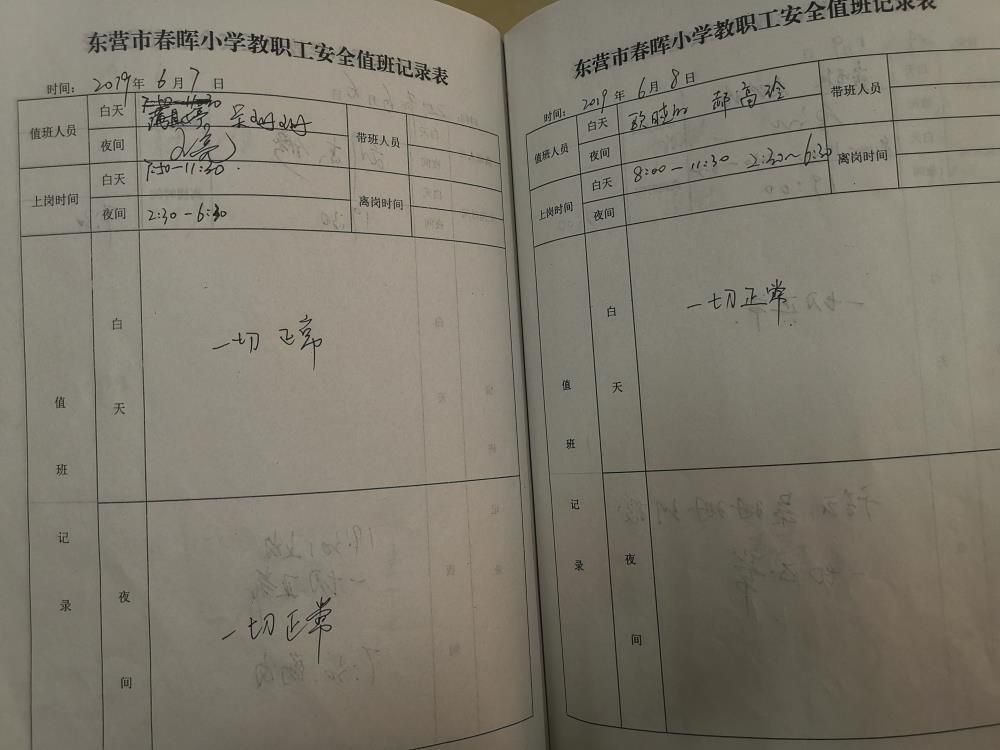 东营市春晖小学教职工安全值班记录表
时间： 2019年 6月 7日
值班人员 白天 7:50-11:30 带班人员
夜间
上岗时间 白天 7:50-11:30 离岗时间
夜间 2:30-6:30
值班记录
白天 一切正常
夜间 一切正常
东营市春晖小学教职工安全值班记录表
时间： 2019年 6月 8日
值班人员 白天 郝高玲 带班人员
夜间
上岗时间 白天 8:00-11:30 2:30~6:30 离岗时间
夜间
值班记录
白天 一切正常
夜间